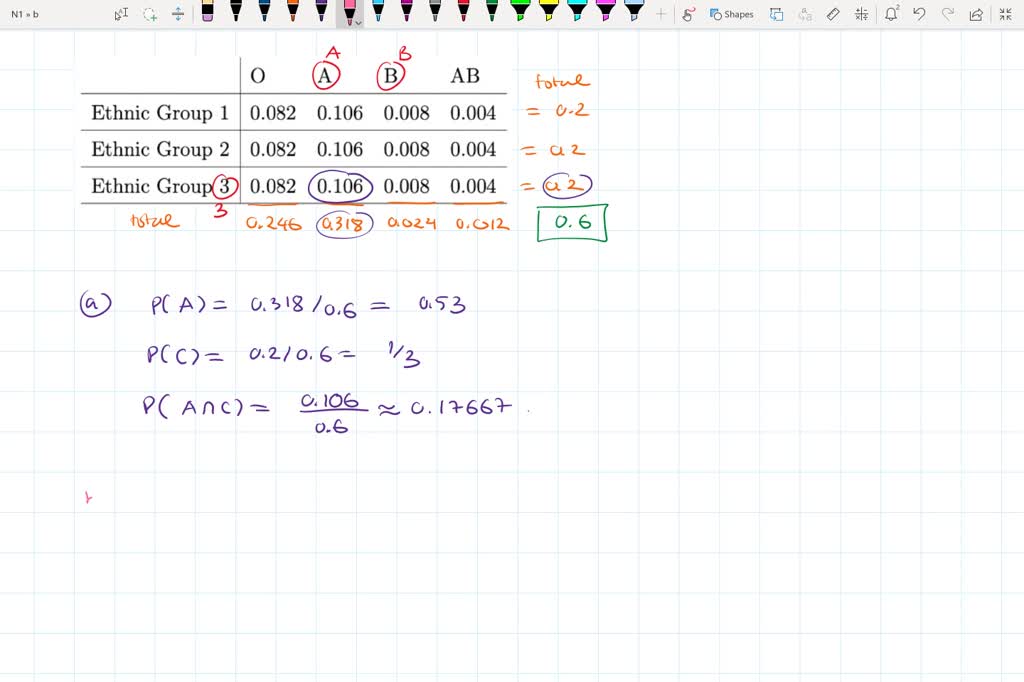 N1 » b
Shapes
A B
O A B AB total
Ethnic Group 1 0.082 0.106 0.008 0.004 = 0.2
Ethnic Group 2 0.082 0.106 0.008 0.004 = 0.2
Ethnic Group 3 0.082 0.106 0.008 0.004 = 0.2
3
total 0.246 0.318 0.024 0.012 0.6
(a) P(A) = 0.318/0.6 = 0.53
P(C) = 0.2/0.6 = 1/3
P(A∩C) = 0.106/0.6 ≈ 0.17667.